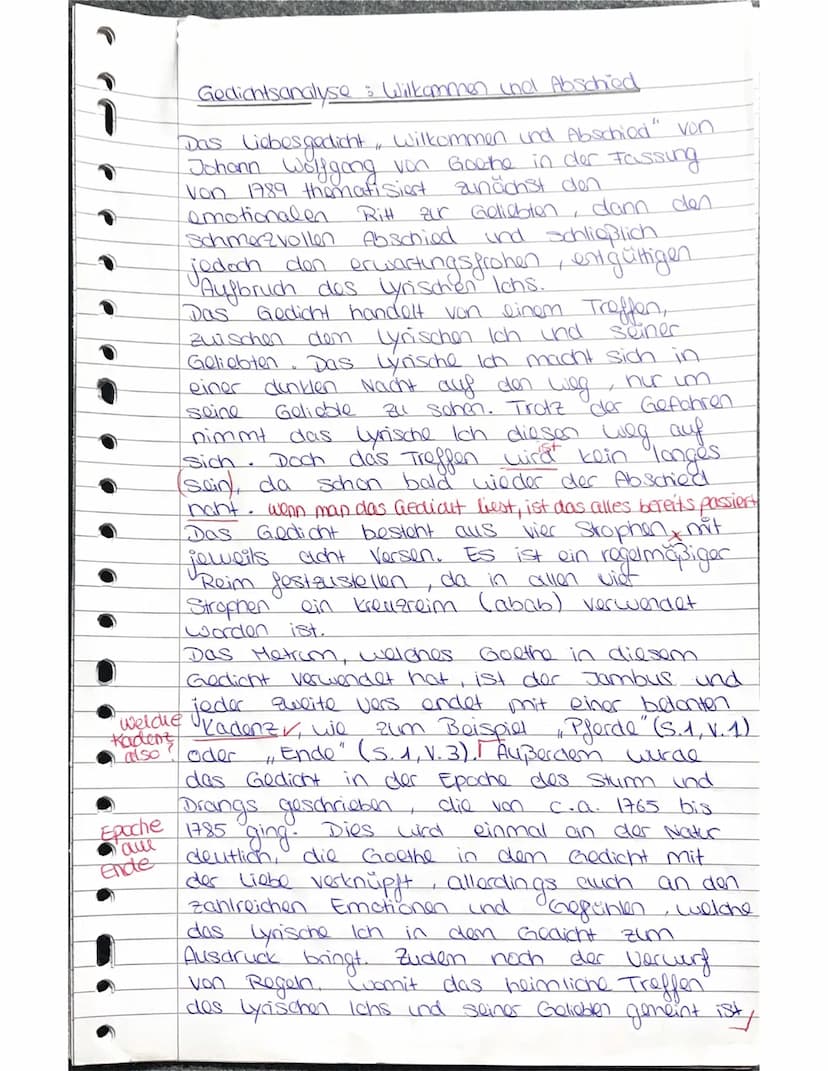 Gedichtsanalyse : Wilkommen und Abschied
Das Liebesgedicht „Wilkommen und Abschied" von
Johann Wolfgang von Goethe in der Fassung
von 1789 thematisiert zunächst den
emotionalen Ritt zur Geliebten, dann den
schmerzvollen Abschied und schließlich
jedoch den erwartungsfrohen, entgültigen
Aufbruch des Lyrischen Ichs.
Das Gedicht handelt von einem Treffen,
zwischen dem Lyrischen Ich und seiner
Geliebten. Das Lyrische Ich macht sich in
einer dunklen Nacht auf den Weg, nur um
seine Geliebte zu sehen. Trotz der Gefahren
nimmt das Lyrische Ich diesen Weg auf
ist
sich. Doch das Treffen wird kein langes
(sein), da schon bald wieder der Abschied
naht. wenn man das Gedicht liest, ist das alles bereits passiert
Das Gedicht besteht aus vier Strophen x mit
jeweils acht Versen. Es ist ein regelmäßiger
Reim festzustellen, da in allen vier
Strophen ein Kreuzreim (abab) verwendet
worden ist.
Das Metrum, welches Goethe in diesem
Gedicht verwendet hat, ist der Jambus und
jeder zweite Vers endet mit einer betonten
welche Kadenz also?
Kadenz ✓, wie zum Beispiel „Pferde" (S.1, V.1)
oder „Ende" (S.1, V.3). Außerdem wurde
das Gedicht in der Epoche des Sturm und
Drangs geschrieben, die von c.a. 1765 bis
Epoche am Ende
1785 ging. Dies wird einmal an der Natur
deutlich, die Goethe in dem Gedicht mit
der Liebe verknüpft, allerdings auch an den
zahlreichen Emotionen und Gefühlen, welche
das Lyrische Ich in dem Gedicht zum
Ausdruck bringt. Zudem noch der Verwurf
von Regeln, womit das heimliche Treffen
des Lyrischen Ichs und seiner Gelieben gemeint ist